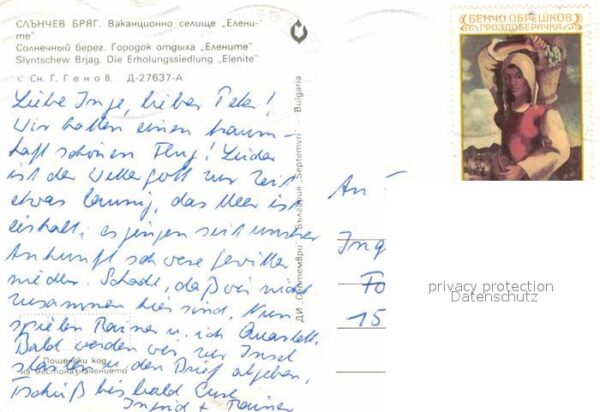 СЛЪНЧЕВ БРЯГ. Ваканционно селище "Елени-
те"
Солнечный берег. Городок отдыха "Елените"
Slyntschew Brjag. Die Erholungssiedlung "Elenite"
с Сн. Г. Генов. Д-27637-А
Liebe Inge, lieber Peter!
Wir hatten einen traum-
haft schönen Flug! Leider
ist der Wettergott zur Zeit
etwas launig, das Meer ist
eiskalt, es gingen seit unserer
Ankunft schwere Gewitter
nieder. Schade, daß wir nicht
zusammen hier sind. Nun
spielen Rainer u. ich Quartett.
Bald werden wir zur Insel
starten u. den Brief abgeben.
Tschüß bis bald Eure
Ingrid + Rainer
Пощенски код
на местоназначението
ДИ "Септември" България "Septemvri" Bulgaria
БЕНЧО ОБРЕШКОВ
ГРОЗДОБЕРАЧКА
An
Ing
Fo
15
privacy protection
Datenschutz